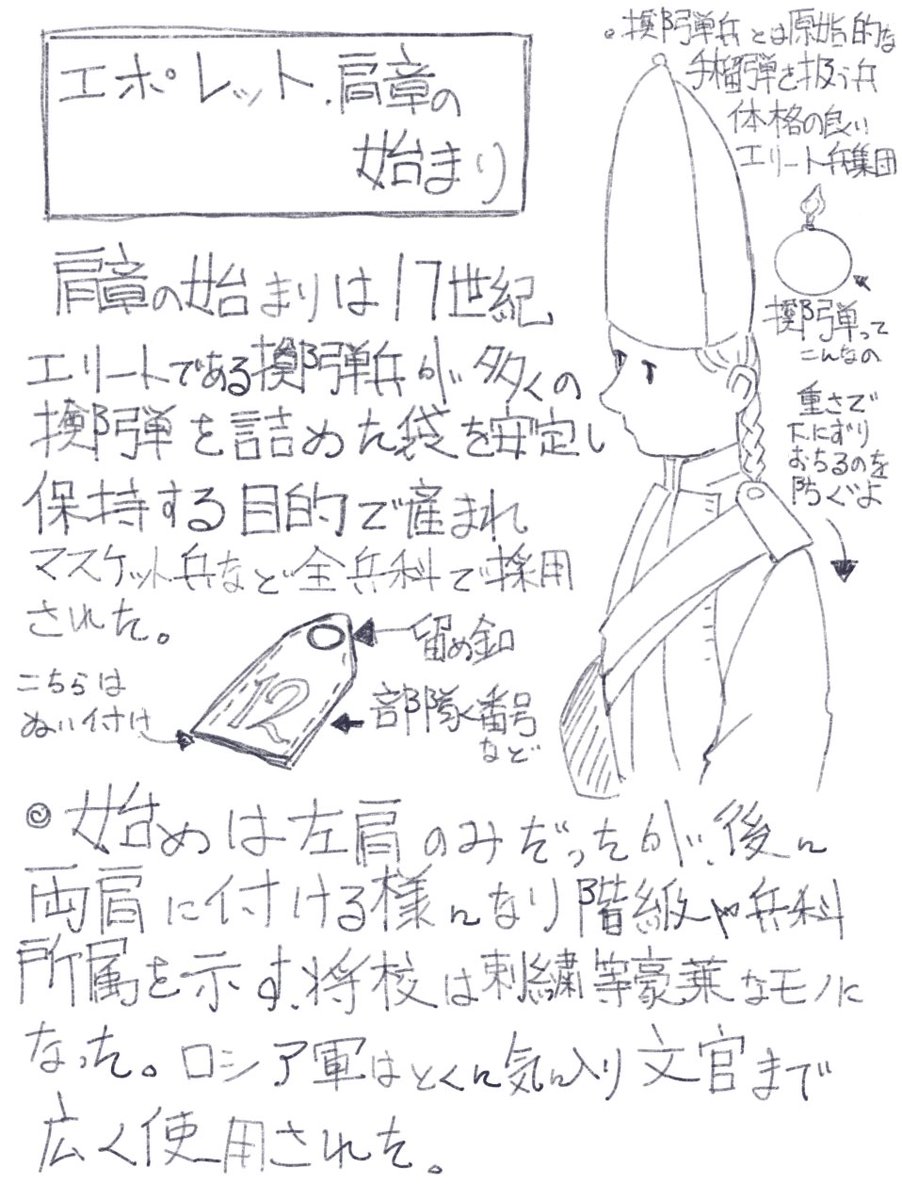 エポレット.肩章の
始まり
。擲弾兵とは原始的な
手榴弾を扱う兵
体格の良い
エリート兵集団
擲弾って
こんなの
重さで
下にずり
おちるのを
防ぐよ
肩章の始まりは17世紀
エリートである擲弾兵が多くの
擲弾を詰めた袋を安定し
保持する目的で産まれ
マスケット兵など全兵科で採用
された。
留め釦
12
部隊番号
など
こちらは
ぬい付け
◎始めは左肩のみだったが、後に
両肩に付ける様になり階級や兵科
所属を示す、将校は刺繍等豪華なモノに
なった。ロシア軍はとくに気に入り文官まで
広く使用された。